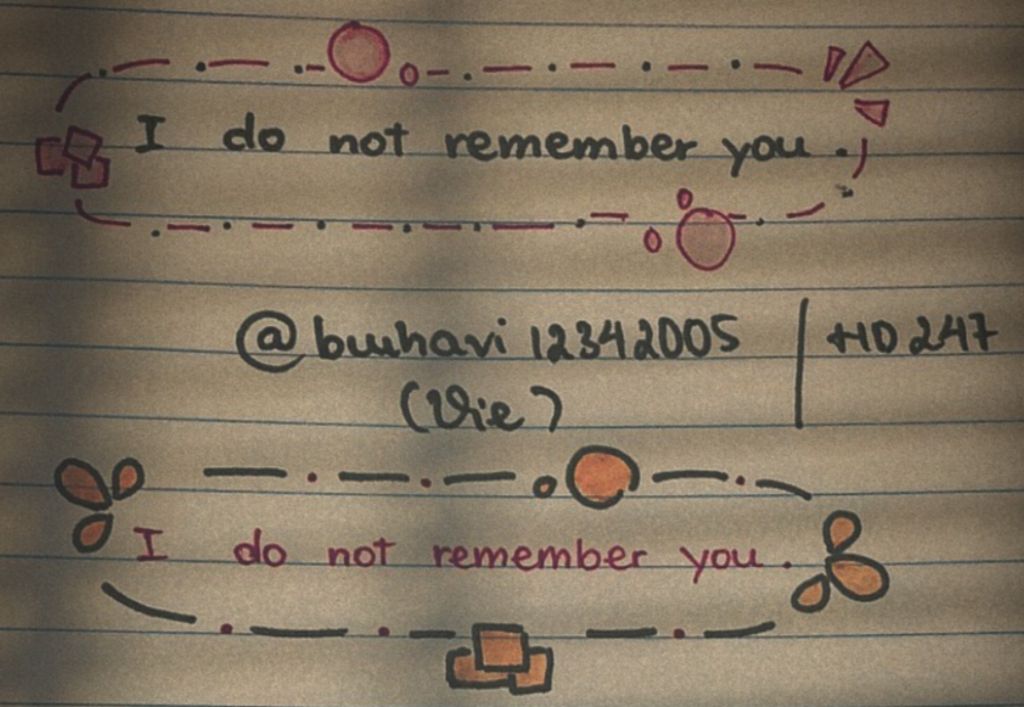 I do not remember you.
@buuhavi12342005 | HD 247
(Vie)
I do not remember you.